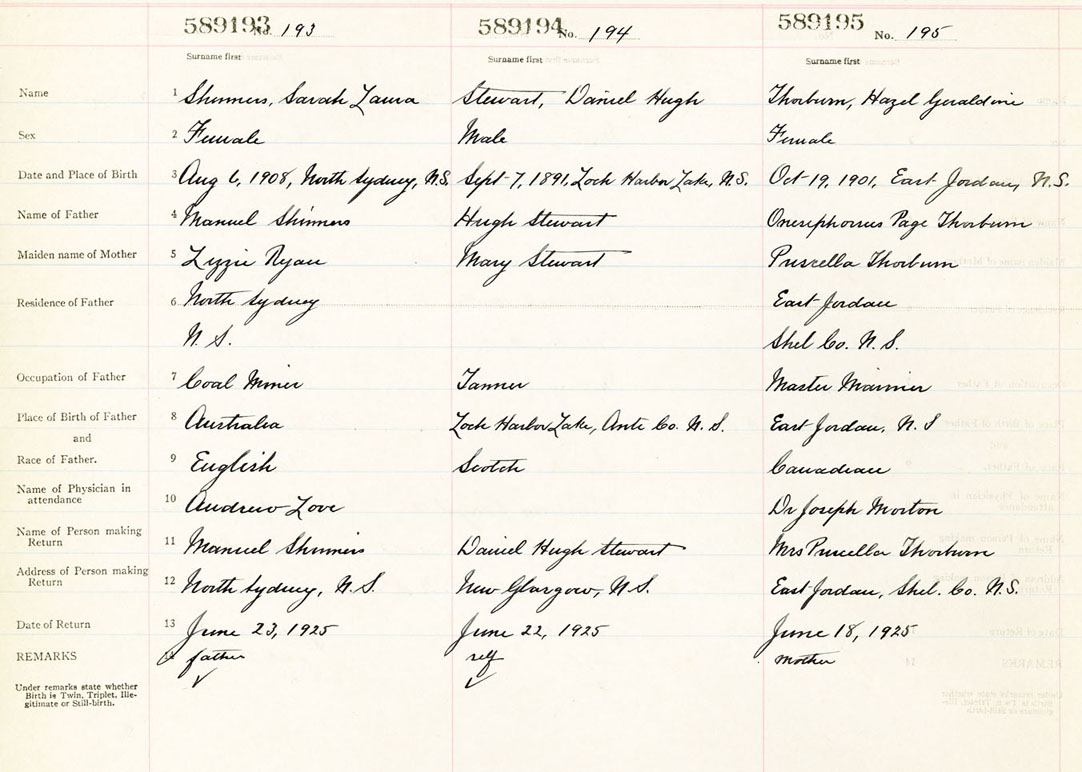 589193 No. 193 589194 No. 194 589195 No. 195
Surname first Surname first Surname first
Name 1 Shinners, Sarah Laura Stewart, Daniel Hugh Thorburn, Hazel Geraldine
Sex 2 Female Male Female
Date and Place of Birth 3 Aug 6, 1908, North Sydney, N.S. Sept 7, 1891, Loch Harbor Lake, N.S. Oct 19, 1901, East Jordan, N.S.
Name of Father 4 Manuel Shinners Hugh Stewart Onesiphorus Page Thorburn
Maiden name of Mother 5 Lizzie Ryan Mary Stewart Priscella Thorburn
Residence of Father 6 North Sydney East Jordan
N. S. Shel Co. N. S.
Occupation of Father 7 Coal Miner Tanner Master Mariner
Place of Birth of Father 8 Australia Loch Harbor Lake, Anti Co. N. S. East Jordan, N. S
and
Race of Father. 9 English Scotch Canadian
Name of Physician in
attendance 10 Andrew Love Dr Joseph Morton
Name of Person making
Return 11 Manuel Shinners Daniel Hugh Stewart Mrs Priscella Thorburn
Address of Person making
Return 12 North Sydney, N. S. New Glasgow, N. S. East Jordan, Shel. Co. N. S.
Date of Return 13 June 23, 1925 June 22, 1925 June 18, 1925
REMARKS father self mother
Under remarks state whether
Birth is Twin, Triplet, Ille-
gitimate or Still-birth.